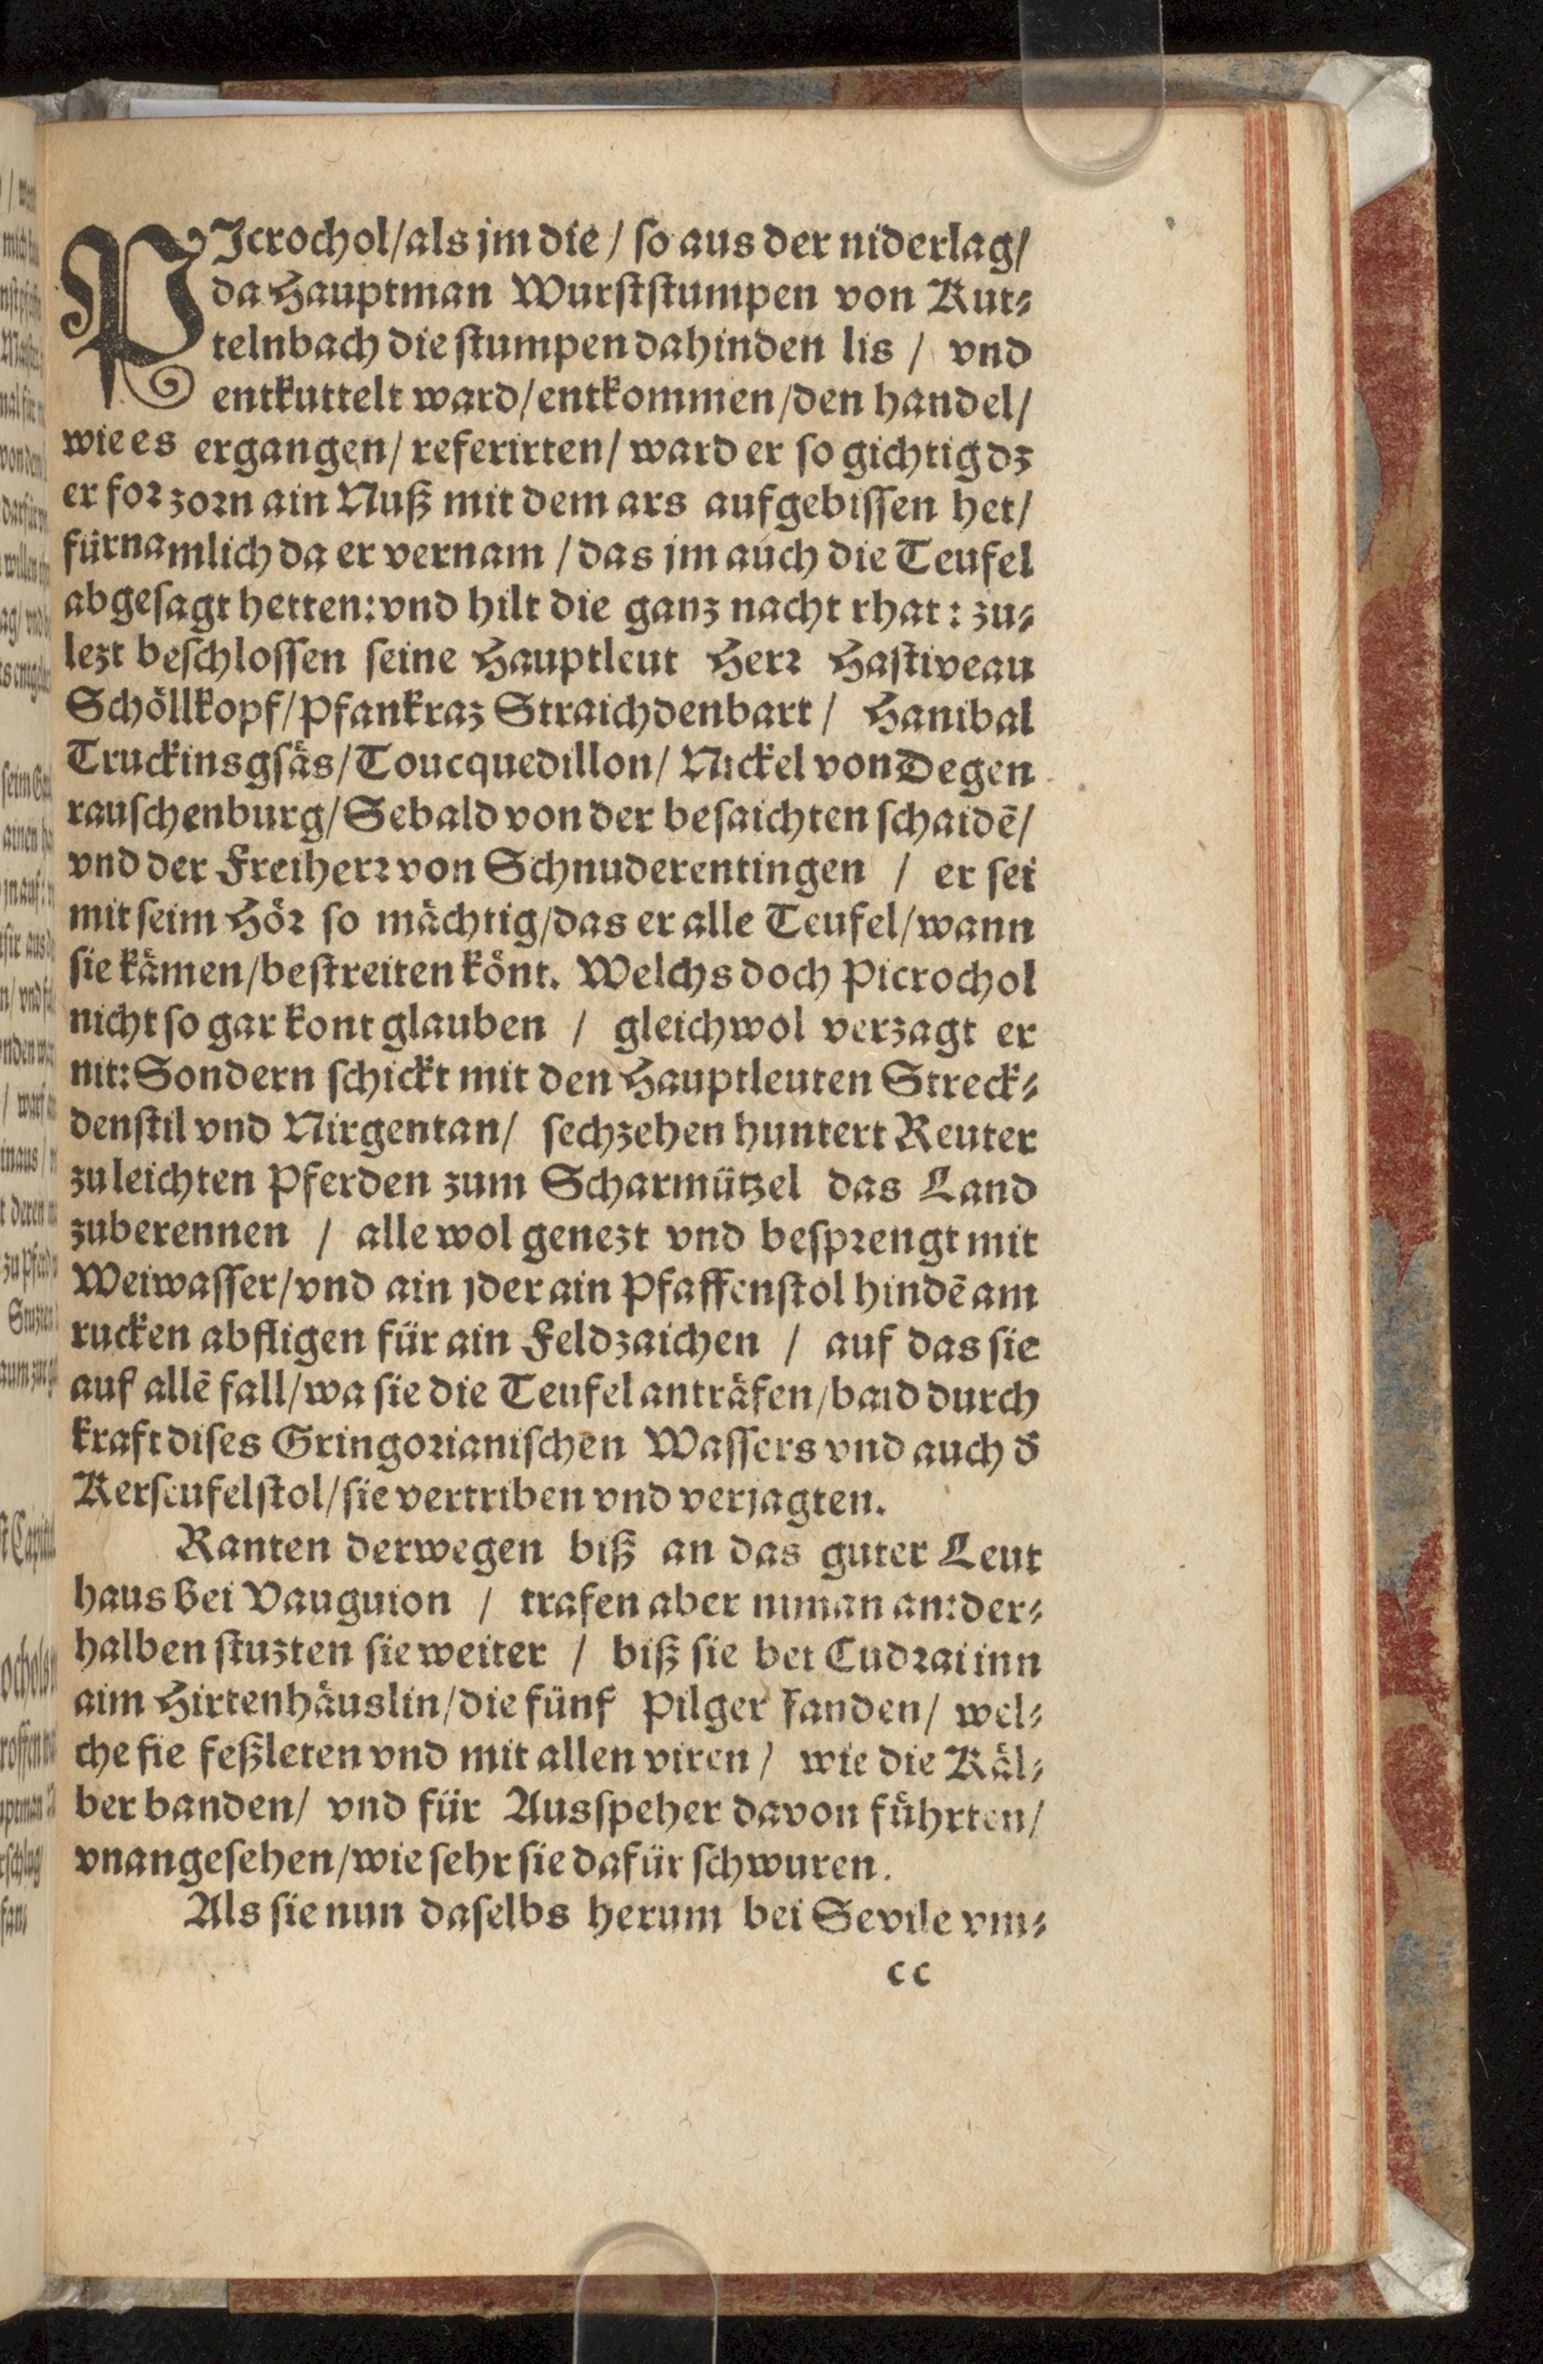 PJcrochol/als jm die / so aus der niderlag/
da Hauptman Wurststumpen von Kut⸗
telnbach die stumpen dahinden lis / vnd
entkuttelt ward/entkommen/den handel/
wie es ergangen/ referirten/ ward er so gichtig dz
er for zorn ain Nuß mit dem ars aufgebissen het/
fürnamlich da er vernam / das jm auch die Teufel
abgesagt hetten: vnd hilt die ganz nacht rhat: zu⸗
lezt beschlossen seine Hauptleut Herr Hastiveau
Schöllkopf/Pfankraz Straichdenbart/ Hanibal
Truckinsgsäs/Toucquedillon/ Nickel von Degen
rauschenburg/Sebald von der besaichten schaidē/
vnd der Freiherr von Schnuderentingen / er sei
mit seim Hör so mächtig/das er alle Teufel/wann
sie kämen/bestreiten könt. Welchs doch Picrochol
nicht so gar kont glauben / gleichwol verzagt er
nit: Sondern schickt mit den Hauptleuten Streck⸗
denstil vnd Nirgentan/ sechzehen huntert Reuter
zu leichten Pferden zum Scharmützel das Land
zuberennen / alle wol genezt vnd besprengt mit
Weiwasser/vnd ain jder ain Pfaffenstol hindē am
rucken abfligen für ain Feldzaichen / auf das sie
auf allē fall/wa sie die Teufel anträfen/bald durch
kraft dises Gringorianischen Wassers vnd auch d̕
Kerseufelstol/sie vertriben vnd verjagten.
Ranten derwegen biß an das guter Leut
haus bei Vauguion / trafen aber niman an: der⸗
halben stuzten sie weiter / biß sie bei Cudrai inn
aim Hirtenhäuslin/die fünf Pilger fanden/ wel⸗
che sie feßleten vnd mit allen viren / wie die Käl⸗
ber banden/ vnd für Ausspeher davon führten/
vnangesehen/wie sehr sie dafür schwuren.
Als sie nun daselbs herum bei Sevile vm⸗
cc